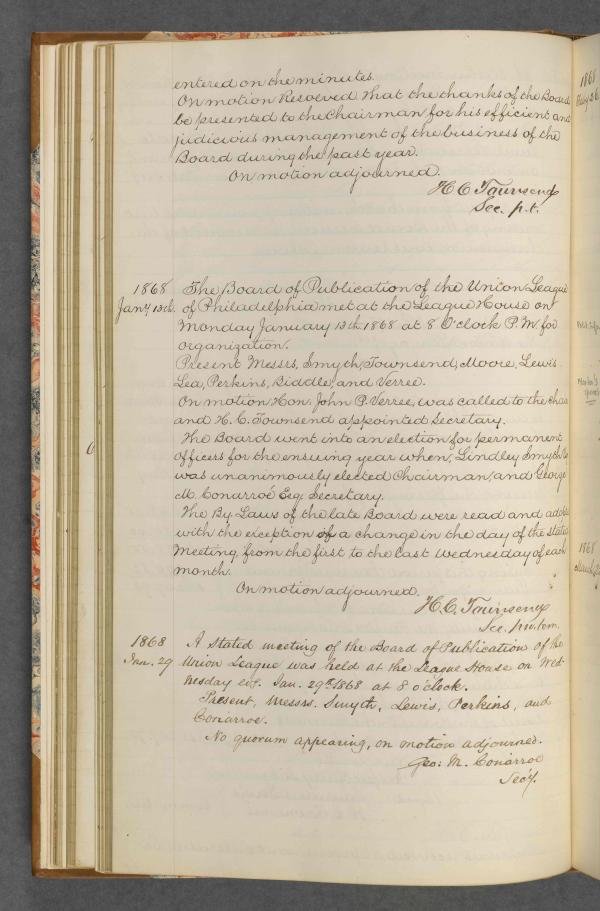 entered on the minutes.
On motion Resolved that the thanks of the Board
be presented to the Chairman for his efficient and
judicious management of the business of the
Board during the past year.
On motion adjourned.
H. C. Townsend
Sec. p.t.
1868 The Board of Publication of the Union League
Jany. 13th. of Philadelphia met at the League House on
Monday January 13th 1868 at 8 O'clock P.M. for
organization.
Present Messrs, Smyth, Townsend, Moore, Lewis
Lea, Perkins, Biddle, and Verree.
On motion Hon. John P. Verree, was called to the chai
and H. C. Townsend appointed Secretary.
The Board went into an election for permanent
officers for the ensuing year when, Lindley Smyth
was unanimously elected Chairman, and George
M. Conarroé Esq. Secretary.
The By Laws of the late Board were read and adop
with the exception of a change in the day of the stated
Meeting, from the first to the last Wednesday of each
month.
On motion adjourned.
H. C. Townsend
Sec. pro. tem.
1868 A Stated meeting of the Board of Publication of the
Jan. 29 Union League was held at the League House on Wed-
nesday evg. Jan. 29th 1868 at 8 o'clock.
Present, Messrs. Smyth, Lewis, Perkins, and
Conarroe.
No quorum appearing, on motion adjourned.
Geo: M. Conarroe
Secy.
1868
1868